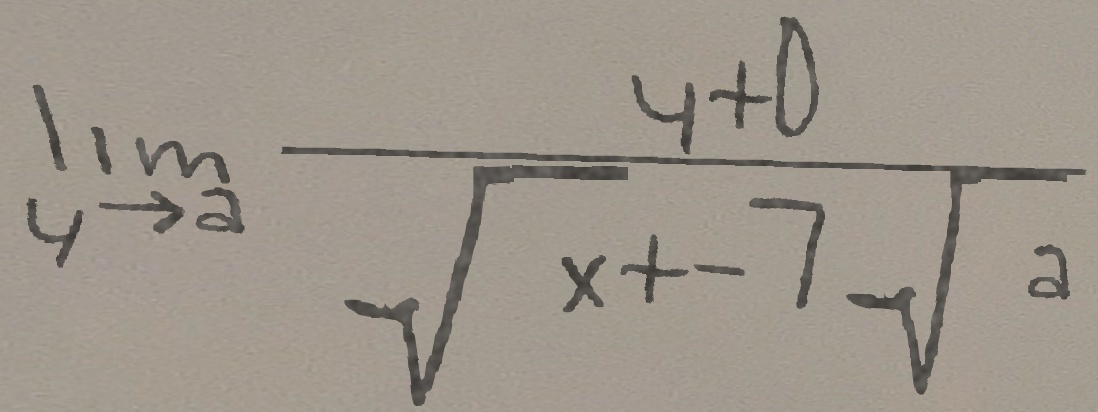 \lim_{y \to a} \frac{y+0}{\sqrt{x}+-7\sqrt{a}}